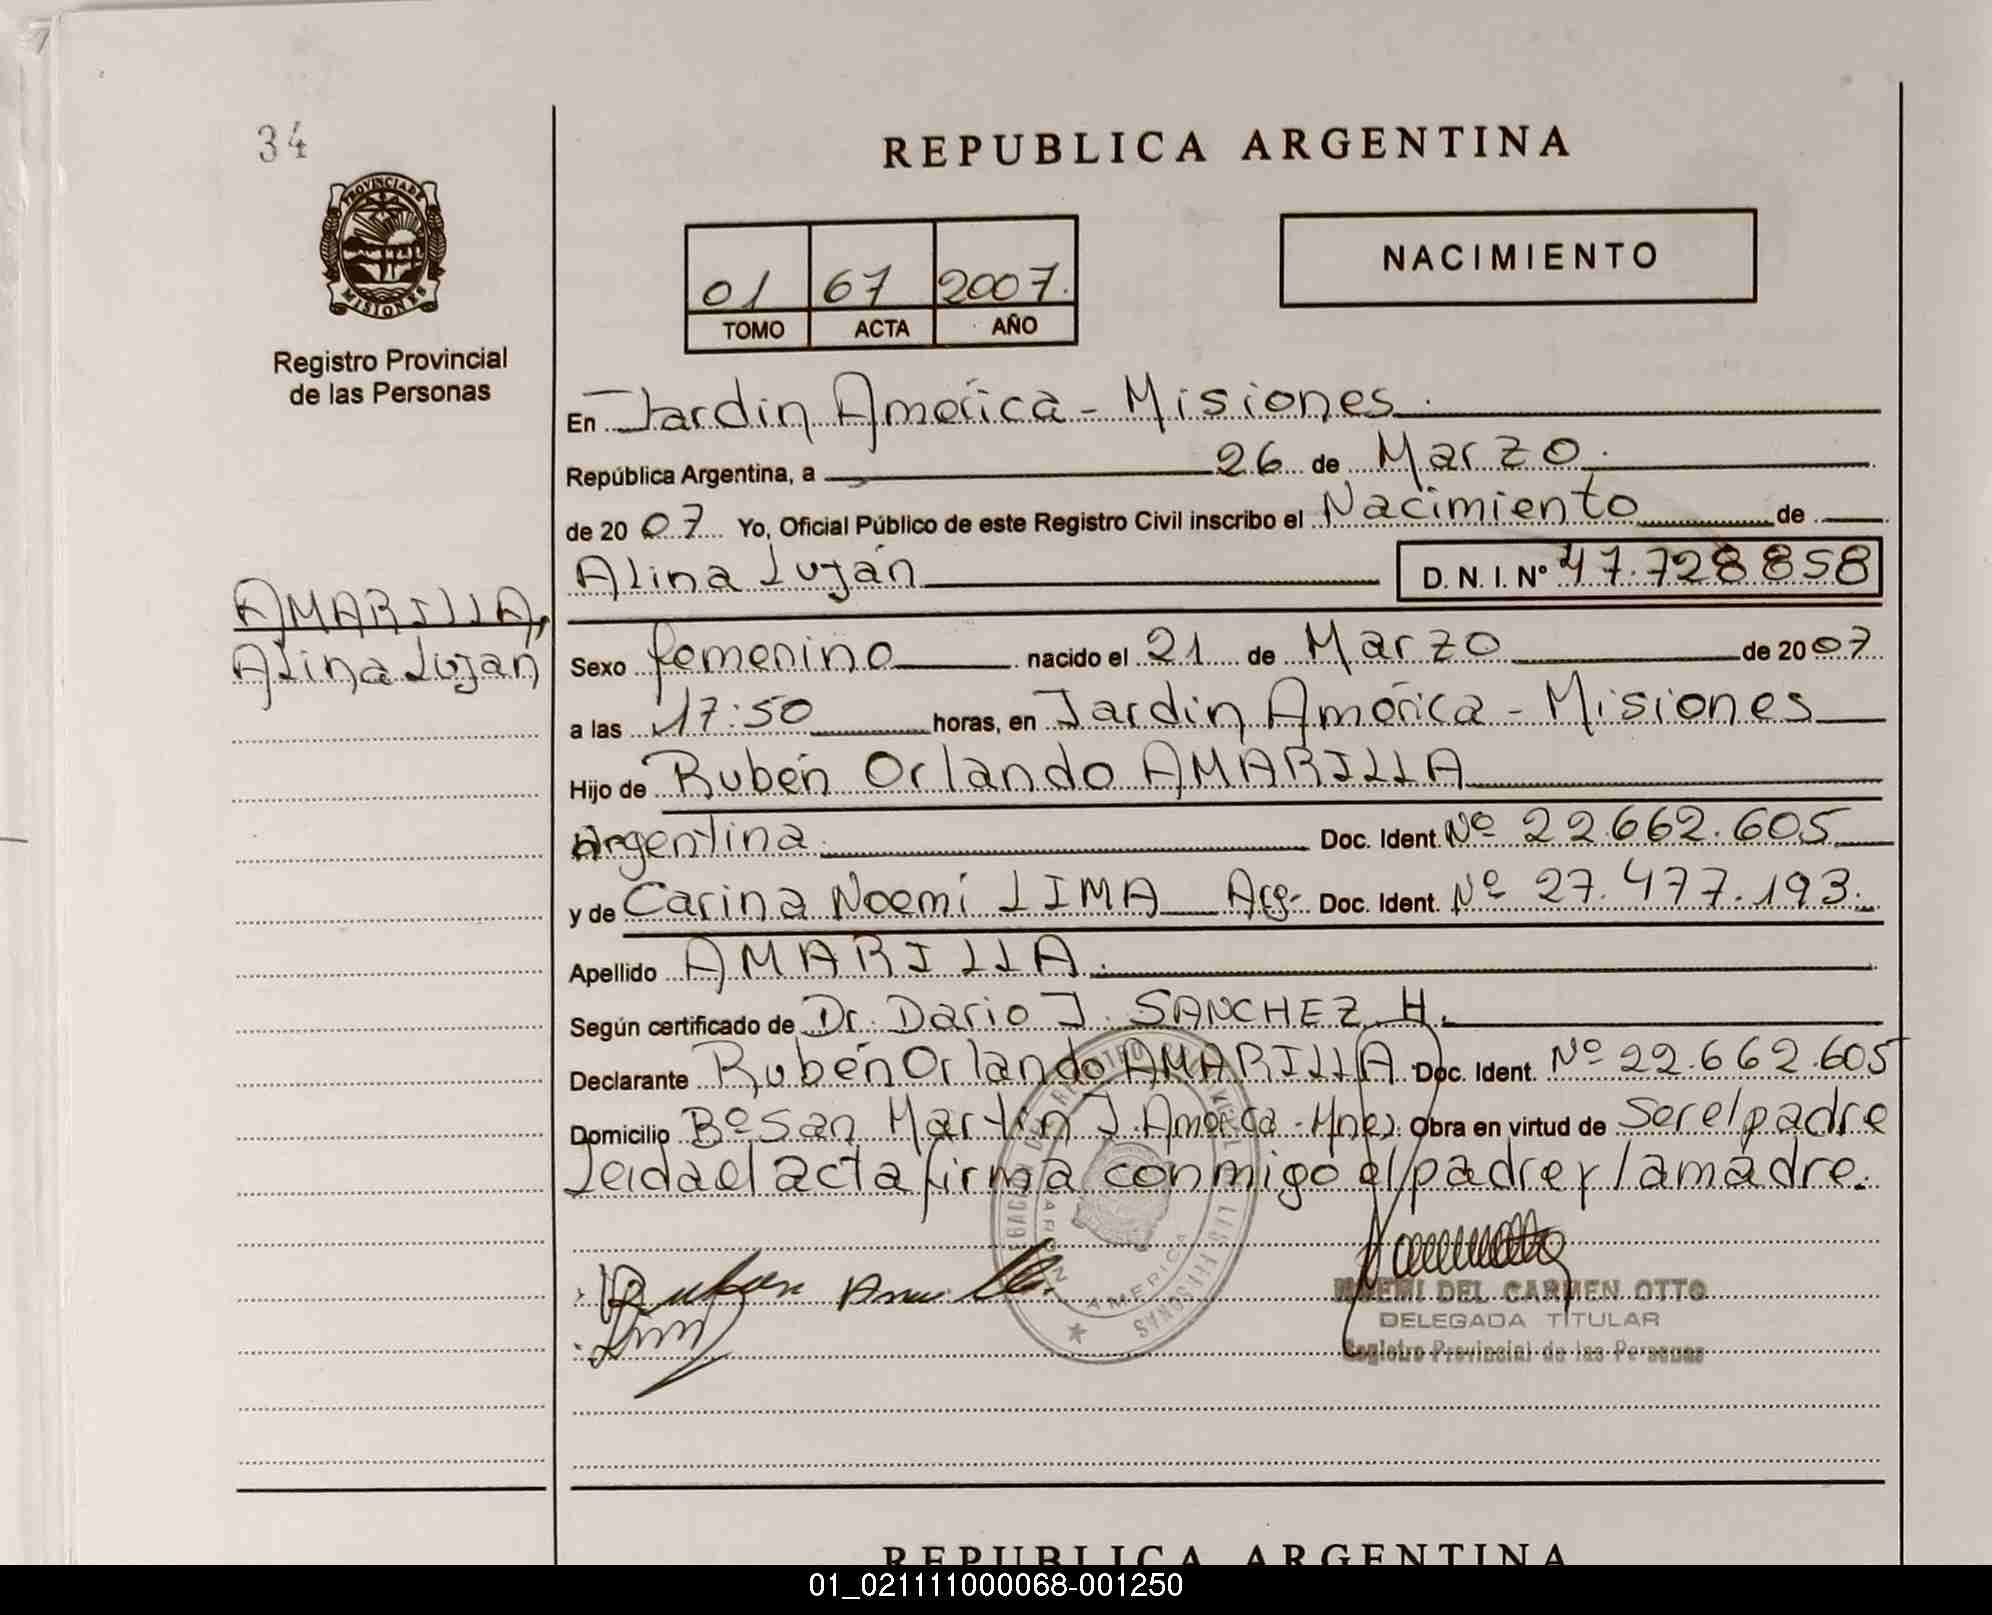 34
PROVINCIA DE
MISIONES
Registro Provincial
de las Personas
REPUBLICA ARGENTINA
01 67 2007.
TOMO ACTA AÑO
NACIMIENTO
En Jardín América - Misiones.
República Argentina, a 26 de Marzo.
de 2007 Yo, Oficial Público de este Registro Civil inscribo el Nacimiento de
Alina Luján D. N. I. Nº 47.728858
AMARILLA,
Alina Luján
Sexo femenino nacido el 21 de Marzo de 2007
a las 17:50 horas, en Jardín América - Misiones
Hijo de Rubén Orlando AMARILLA
Argentina Doc. Ident. Nº 22.662.605
y de Carina Noemí LIMA Arg. Doc. Ident. Nº 27.477.193.
Apellido AMARILLA.
Según certificado de Dr. Dario J. SANCHEZ H.
Declarante Rubén Orlando AMARILLA Doc. Ident. Nº 22.662.605
Domicilio Bº San Martín J. América - Mnes. Obra en virtud de Ser el padre
Leida el acta firma conmigo el padre y la madre.
JARDIN AMERICA
NOEMI DEL CARMEN OTTO
DELEGADA TITULAR
Registro Provincial de las Personas
REPUBLICA ARGENTINA
01_021111000068-001250